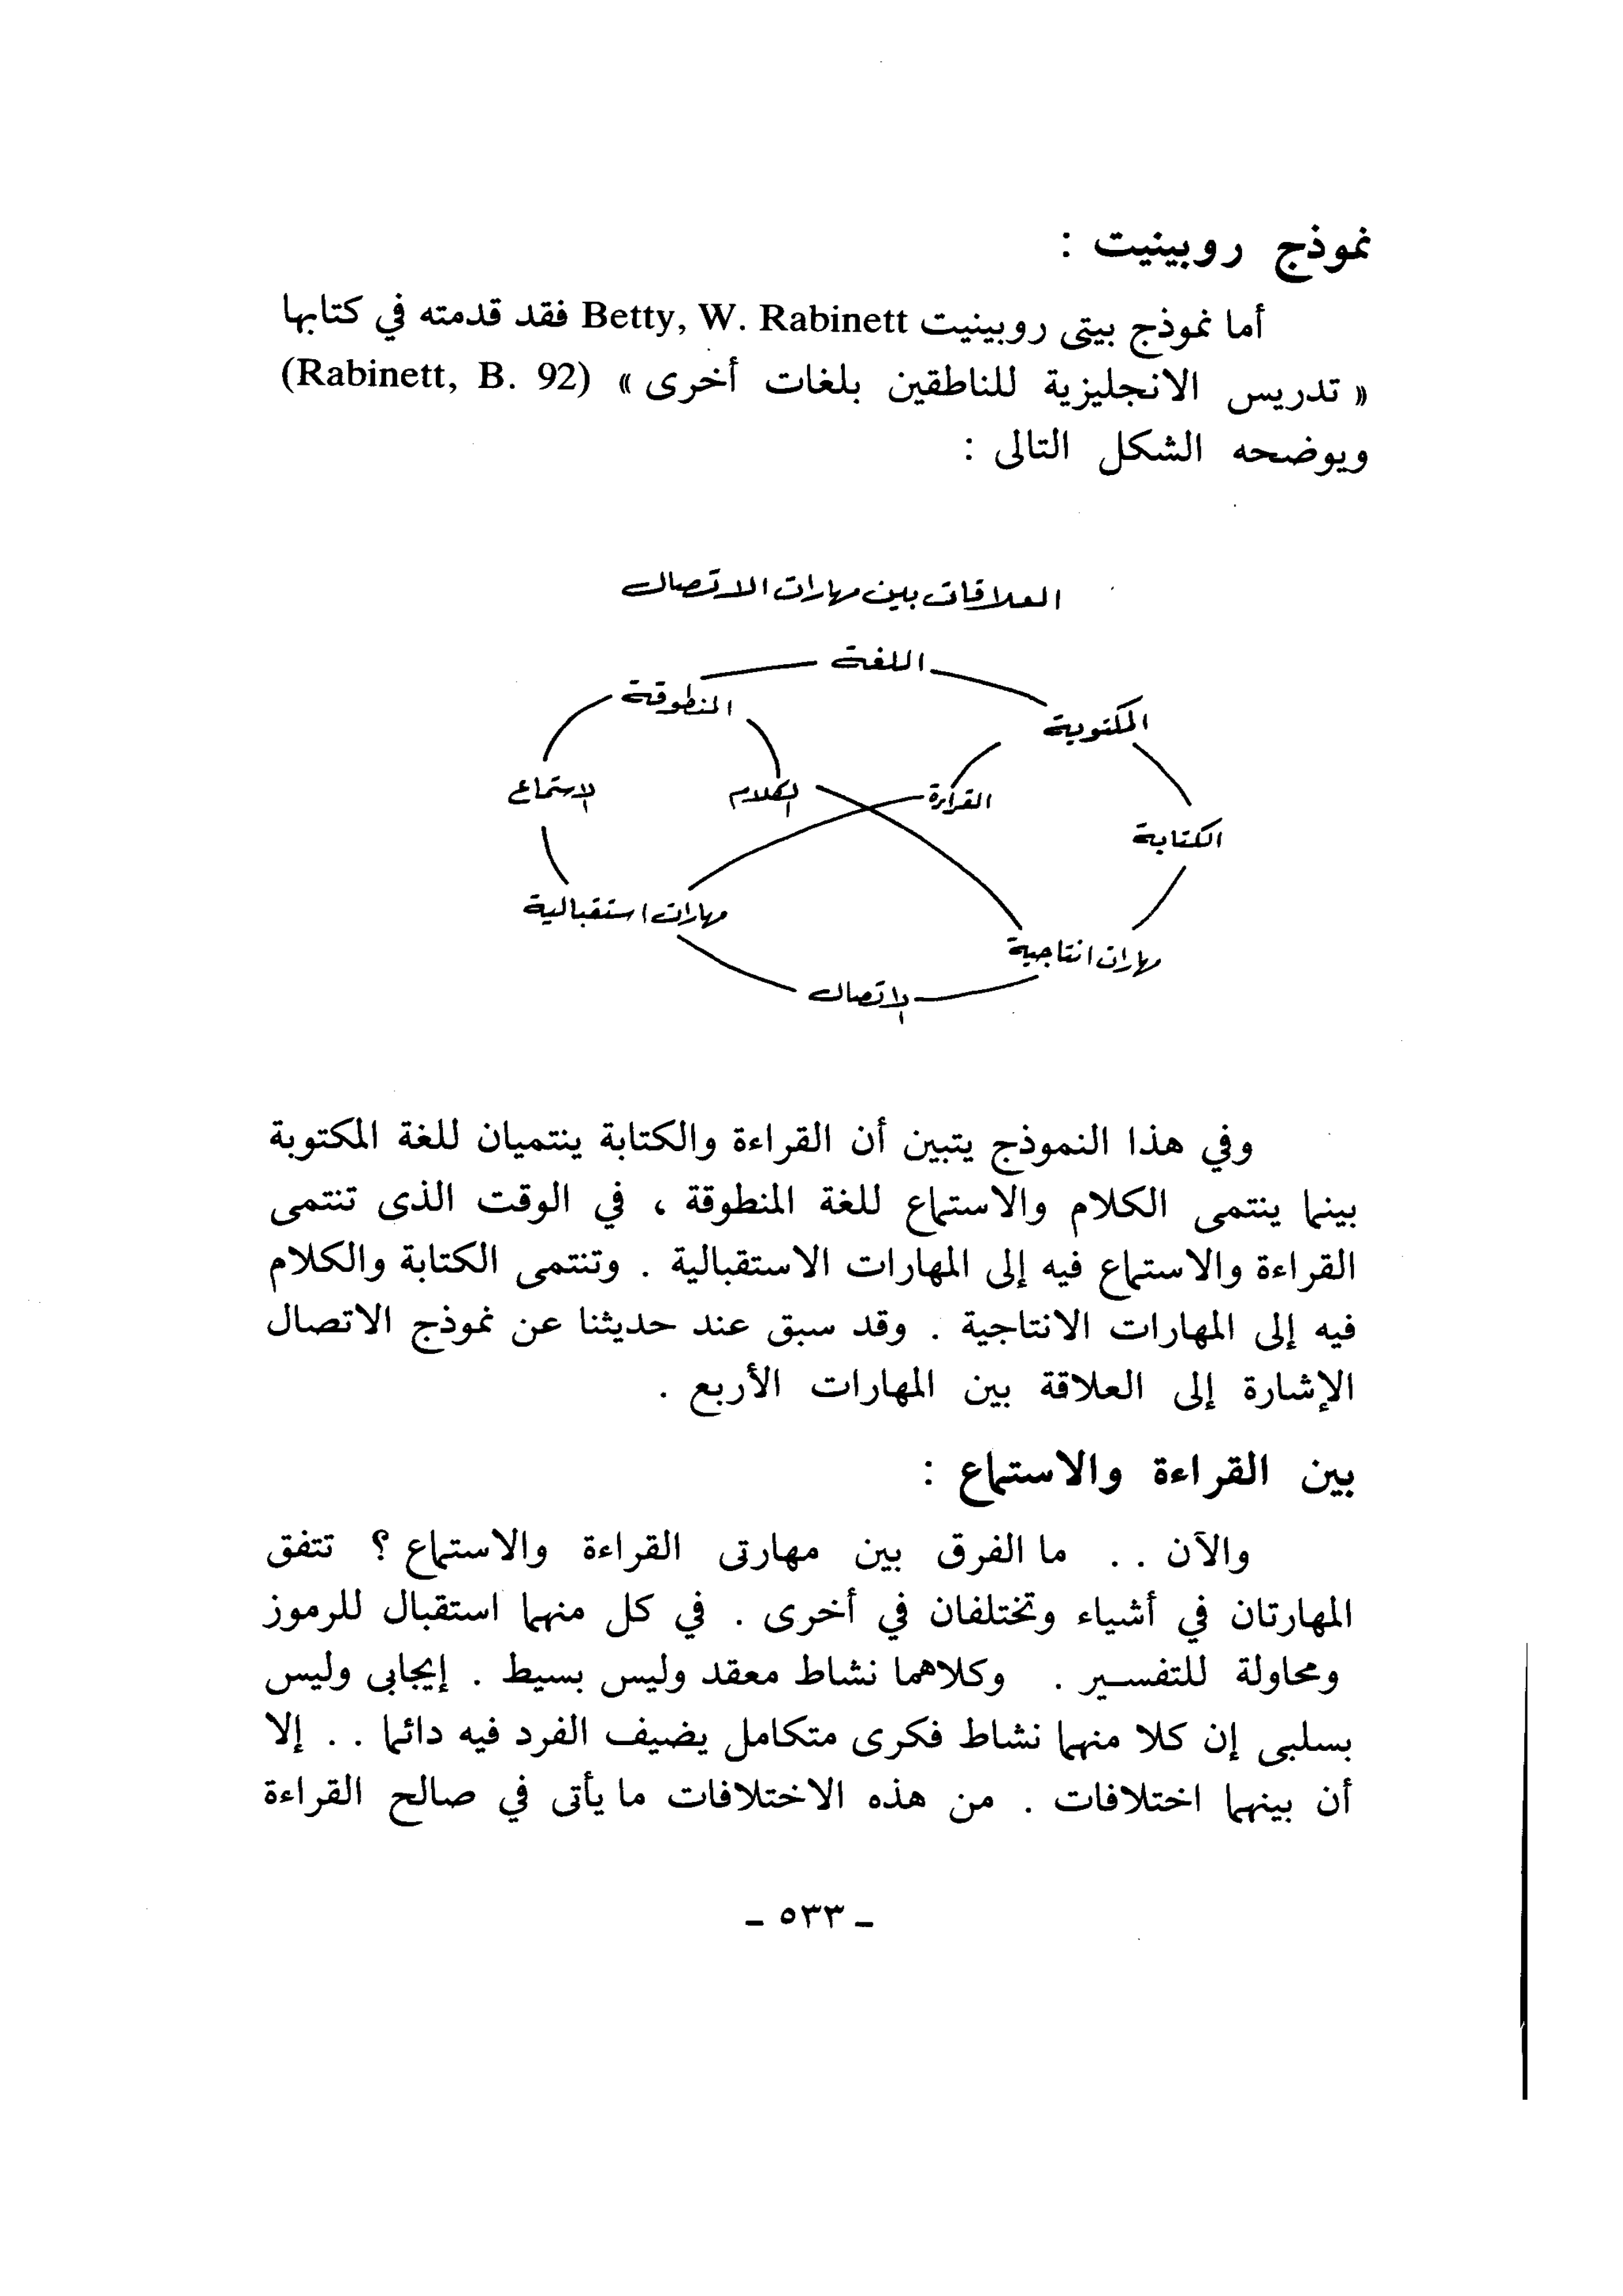 نموذج روبينيت :
أما نموذج بيتى روبينيت Betty, W. Rabinett فقد قدمته في كتابها
« تدريس الانجليزية للناطقين بلغات أخرى » (Rabinett, B. 92)
ويوضحه الشكل التالى :
العلاقات بين مهارات الاتصال
اللغة
المنطوقة
المكتوبة
القراءة
الكلام
الاستماع
الكتابة
مهارات استقبالية
مهارات انتاجية
الاتصال
وفي هذا النموذج يتبين أن القراءة والكتابة ينتميان للغة المكتوبة
بينما ينتمى الكلام والاستماع للغة المنطوقة ، في الوقت الذى تنتمى
القراءة والاستماع فيه إلى المهارات الاستقبالية . وتنتمى الكتابة والكلام
فيه إلى المهارات الانتاجية . وقد سبق عند حديثنا عن نموذج الاتصال
الإشارة إلى العلاقة بين المهارات الأربع .
بين القراءة والاستماع :
والآن . . ما الفرق بين مهارتى القراءة والاستماع ؟ تتفق
المهارتان في أشياء وتختلفان في أخرى . في كل منهما استقبال للرموز
ومحاولة للتفسير . وكلاهما نشاط معقد وليس بسيط . إيجابى وليس
بسلبى إن كلا منهما نشاط فكرى متكامل يضيف الفرد فيه دائما . . إلا
أن بينهما اختلافات . من هذه الاختلافات ما يأتى في صالح القراءة
ـ ٥٣٣ ـ